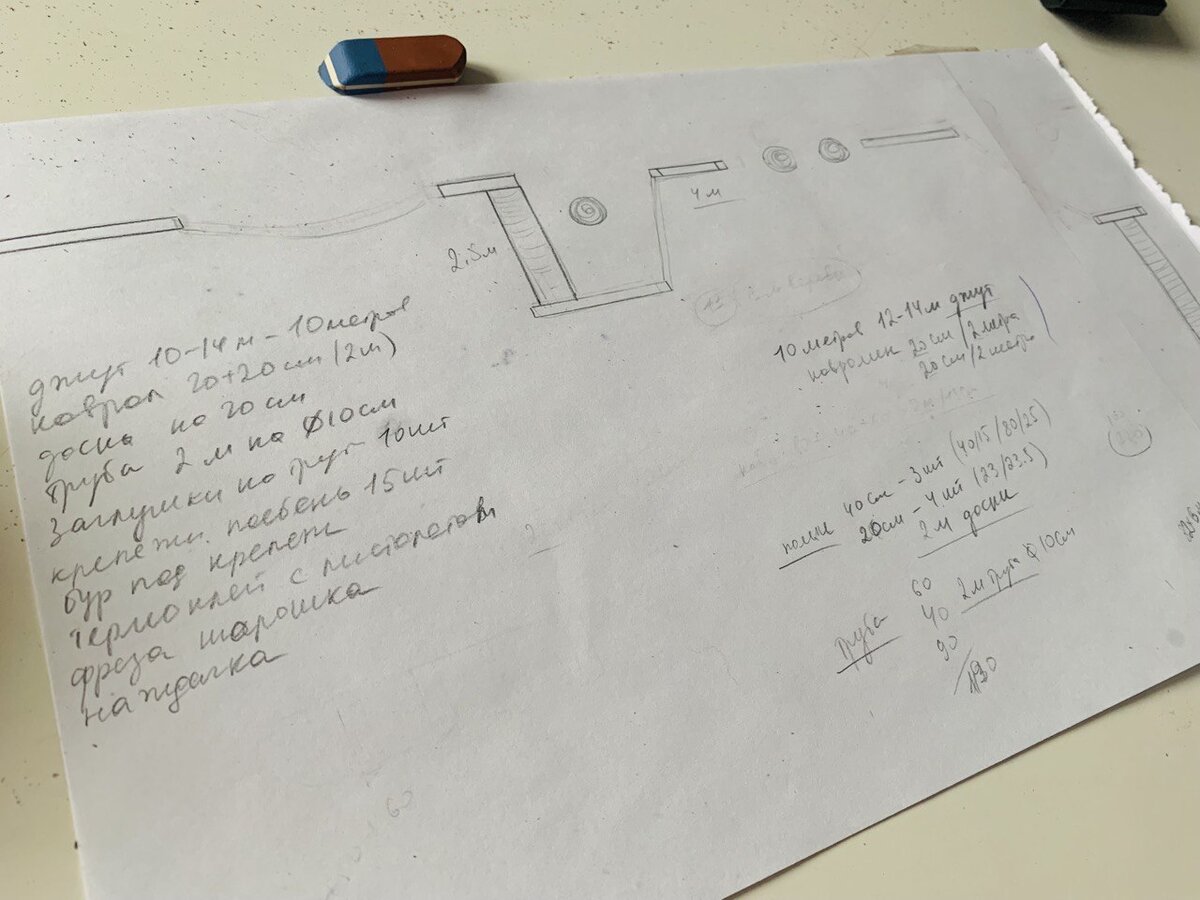 2.5м
4 м
джут 10-14м - 10метров
ковром 20+20см (2м)
доска на 20см
труба 2м на Ф10см
Заглушки на трут 10шт
крепежи 15шт
бур под крепеж
термоклей с пистолетом
фреза шарошка
наждачка
10метров 12-14м джут
ковролин 20см/2метра
20см/2метра
полки 40см - 3шт (40/15/80/25)
20см - 4шт (23/23.5)
2м доски
Труба 60
40 2м труба Ф10см
90
190